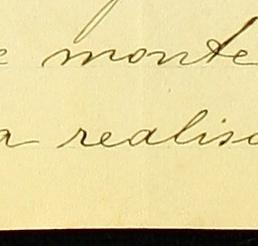 e monte
a realisa